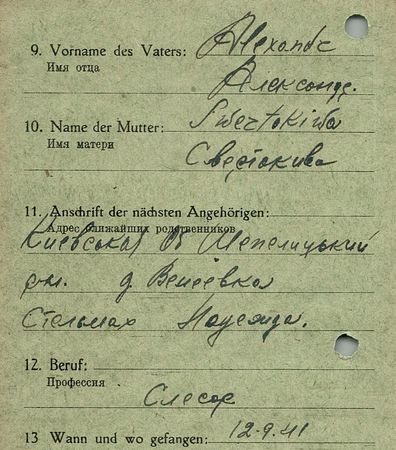 9. Vorname des Vaters: Alexandr
Имя отца
Александ.
10. Name der Mutter: Swertokiwa
Имя матери
Свертокива
11. Anschrift der nächsten Angehörigen:
Адрес ближайших родственников
Киевская
д. Венеевка
Стельмах Надежда.
12. Beruf:
Профессия
Слесар
13 Wann und wo gefangen: 12.9.41